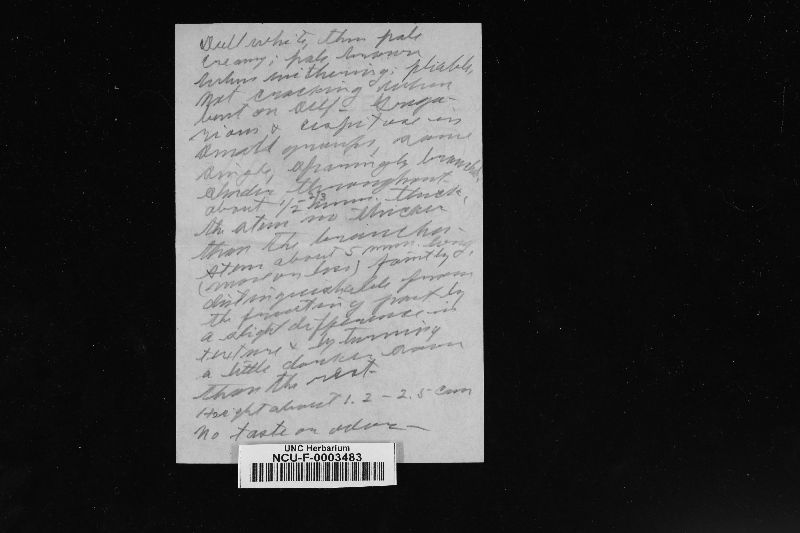 Dull white, then pale
creamy; pale brown
when withering; pliable,
not cracking when
bent on self - Grega-
rious & cespitose in
small groups, some
single, sparingly branched,
slender throughout
about 1/2 - 2/3 mm. thick,
the stem no thicker
than the branches -
Stem about 5 mm. long
(more or less) faintly
distinguishable from
the fruiting part by
a slight difference in
texture & by turning
a little darker
than the rest -
Height about 1.2 - 2.5 cm
No taste or odor -
UNC Herbarium
NCU-F-0003483